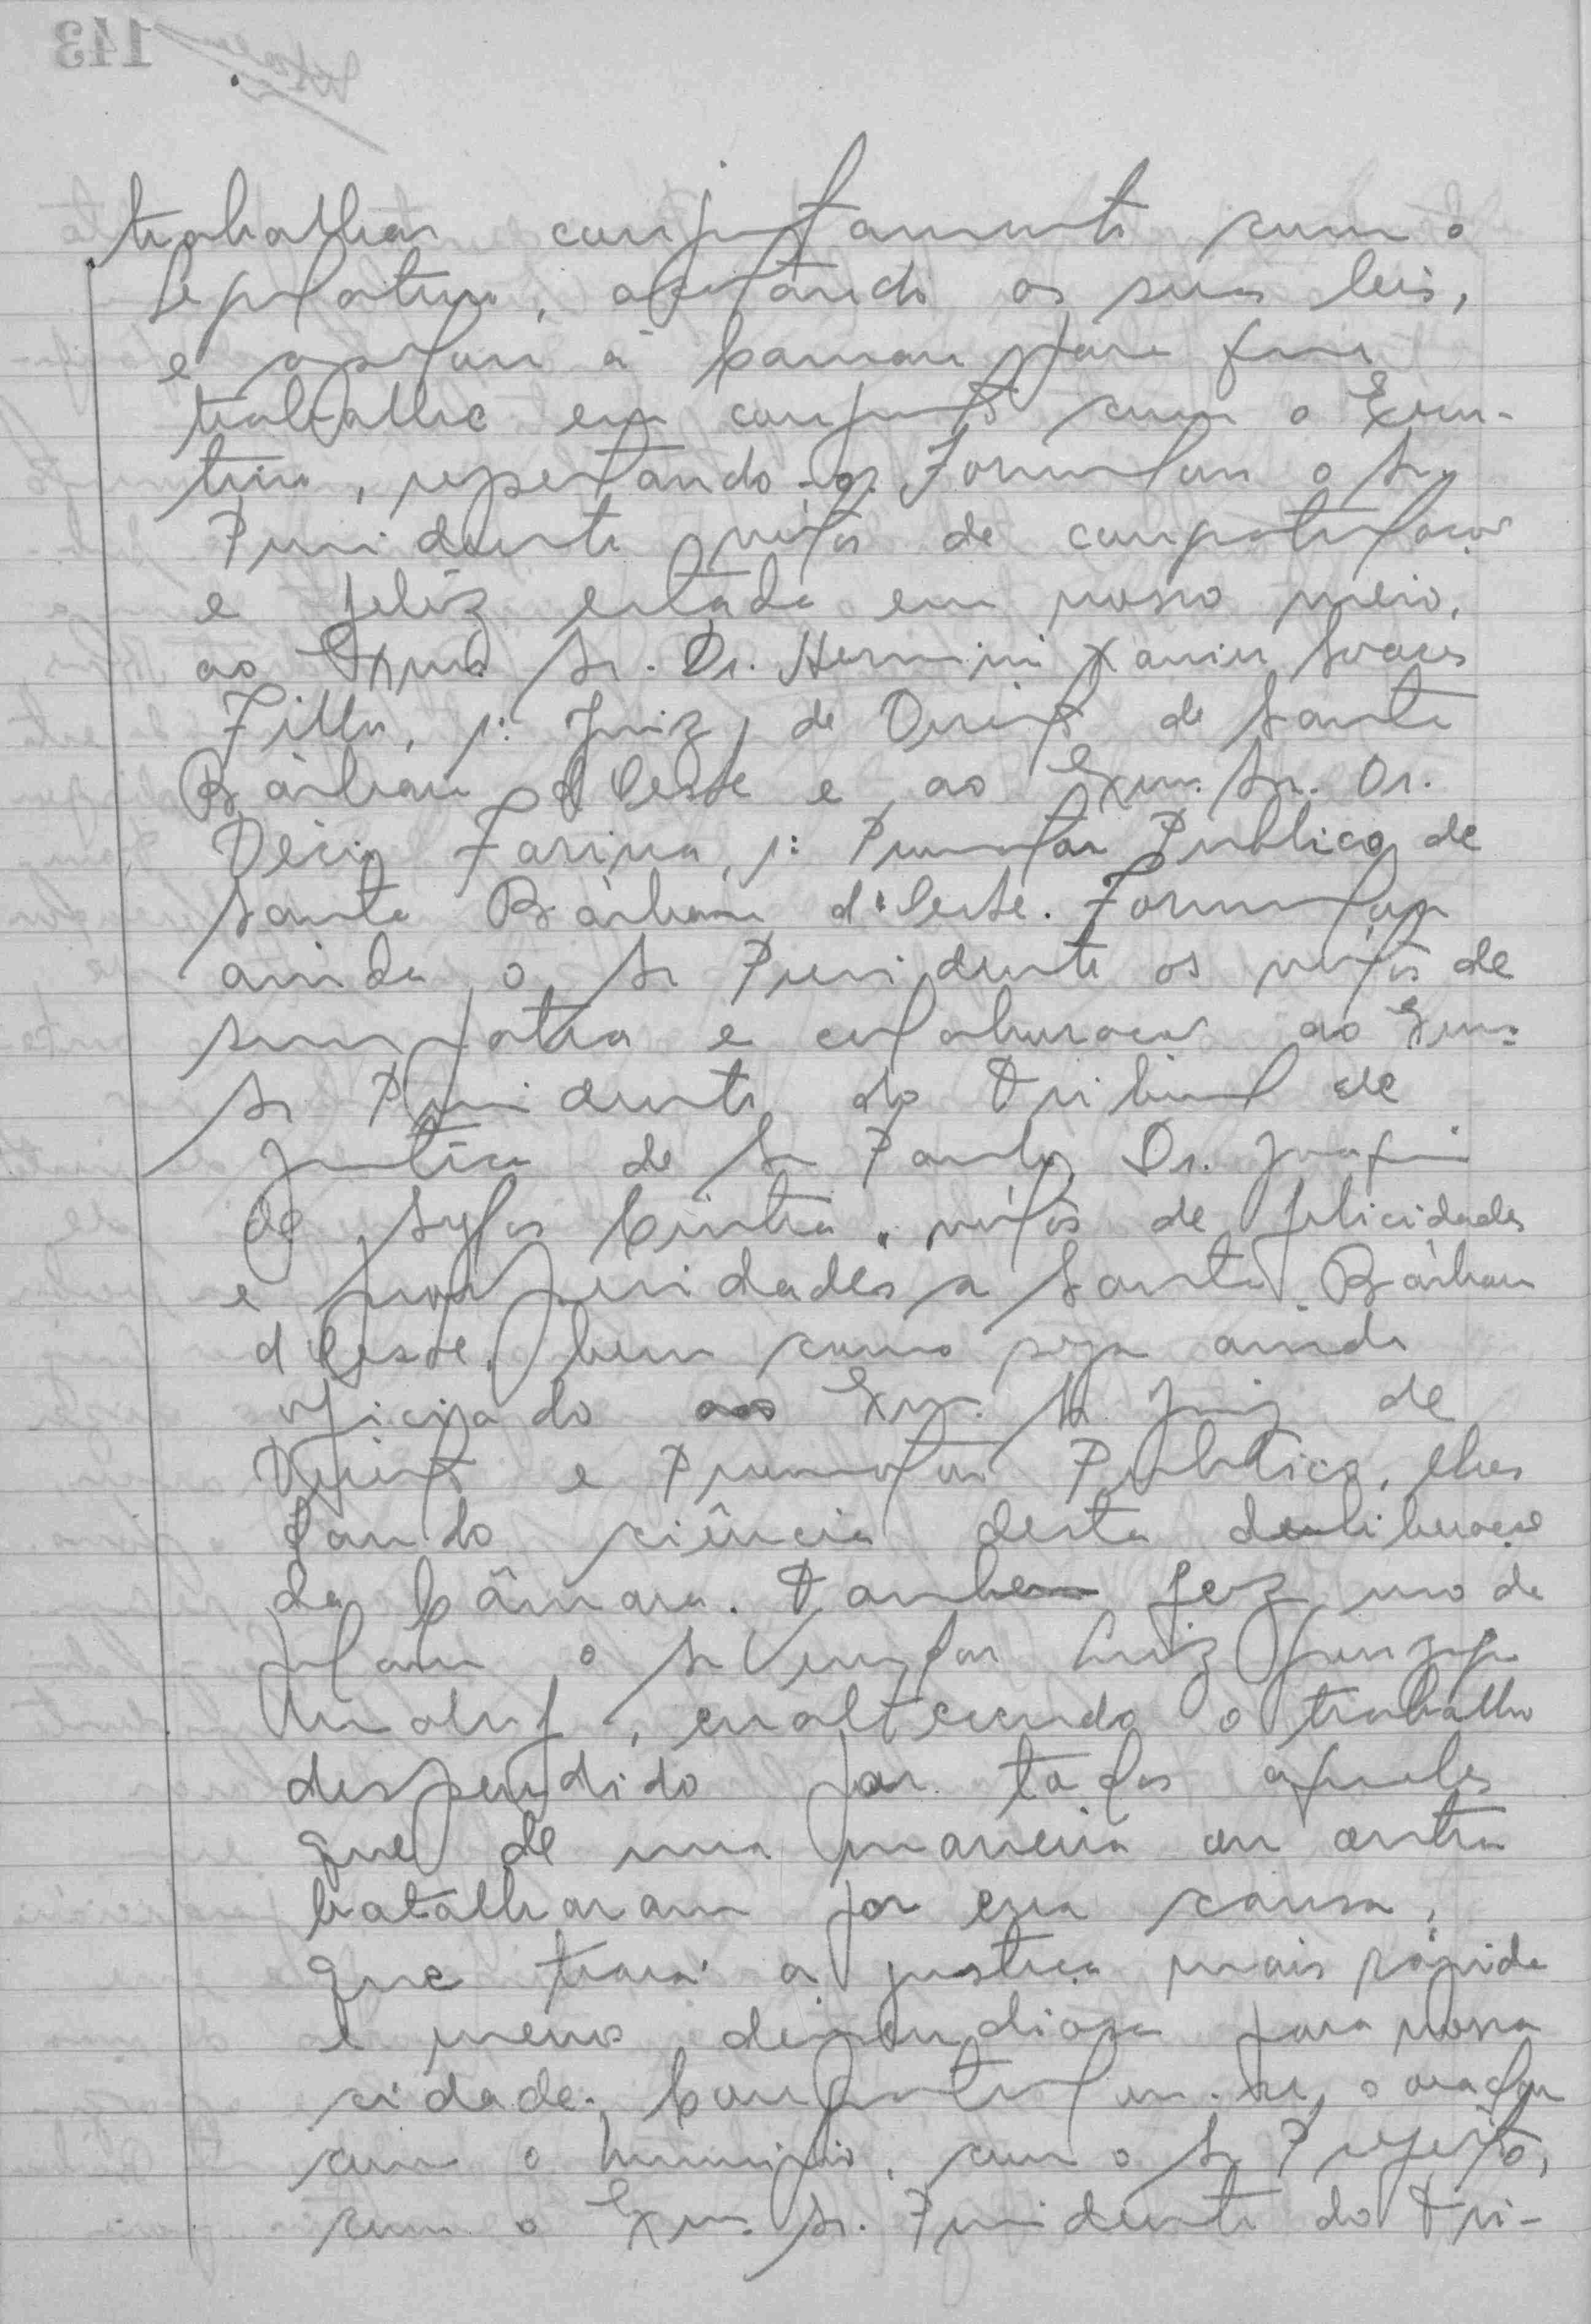 trabalhar conjuntamente com o
Legislativo, acatando as suas leis,
e apelou à Câmara para que
trabalhe em conjunto com o Execu-
tivo, respeitando-o. Formulou o Sr
Presidente votos de congratulações
e feliz estada em nosso meio,
ao Exmo Sr. Dr. Hermini Xavier Soares
Filho, 1º Juiz de Direito de Santa
Bárbara d'Oeste e ao Exmo. Sr. Dr.
Décio Farina, 1º Promotor Publico de
Santa Bárbara d'Oeste. Formulou
ainda o Sr Presidente os votos de
simpatia e colaboração ao Exmo
Sr Presidente do Tribunal de
Justiça de São Paulo, Dr. Joaquim
de Sylos Cintra, votos de felicidades
e prosperidades a Santa Bárbara
d'Oeste, bem como seja ainda
oficiado aos Exmo. Sr Juiz de
Direito e Promotor Publico, lhes
dando ciência desta deliberação
da Câmara. Tambem fez uso da
palavra o Sr Vereador Luiz Gonzaga
, enaltecendo o trabalho
despendido por todos aqueles
que de uma maneira ou outra
batalharam por essa causa,
que trará a justiça mais rápida
e menos dispendiosa para nossa
cidade. Congratulou-se o orador
com o Município, com o Sr Prefeito,
com o Exmo Sr. Presidente do Tri-